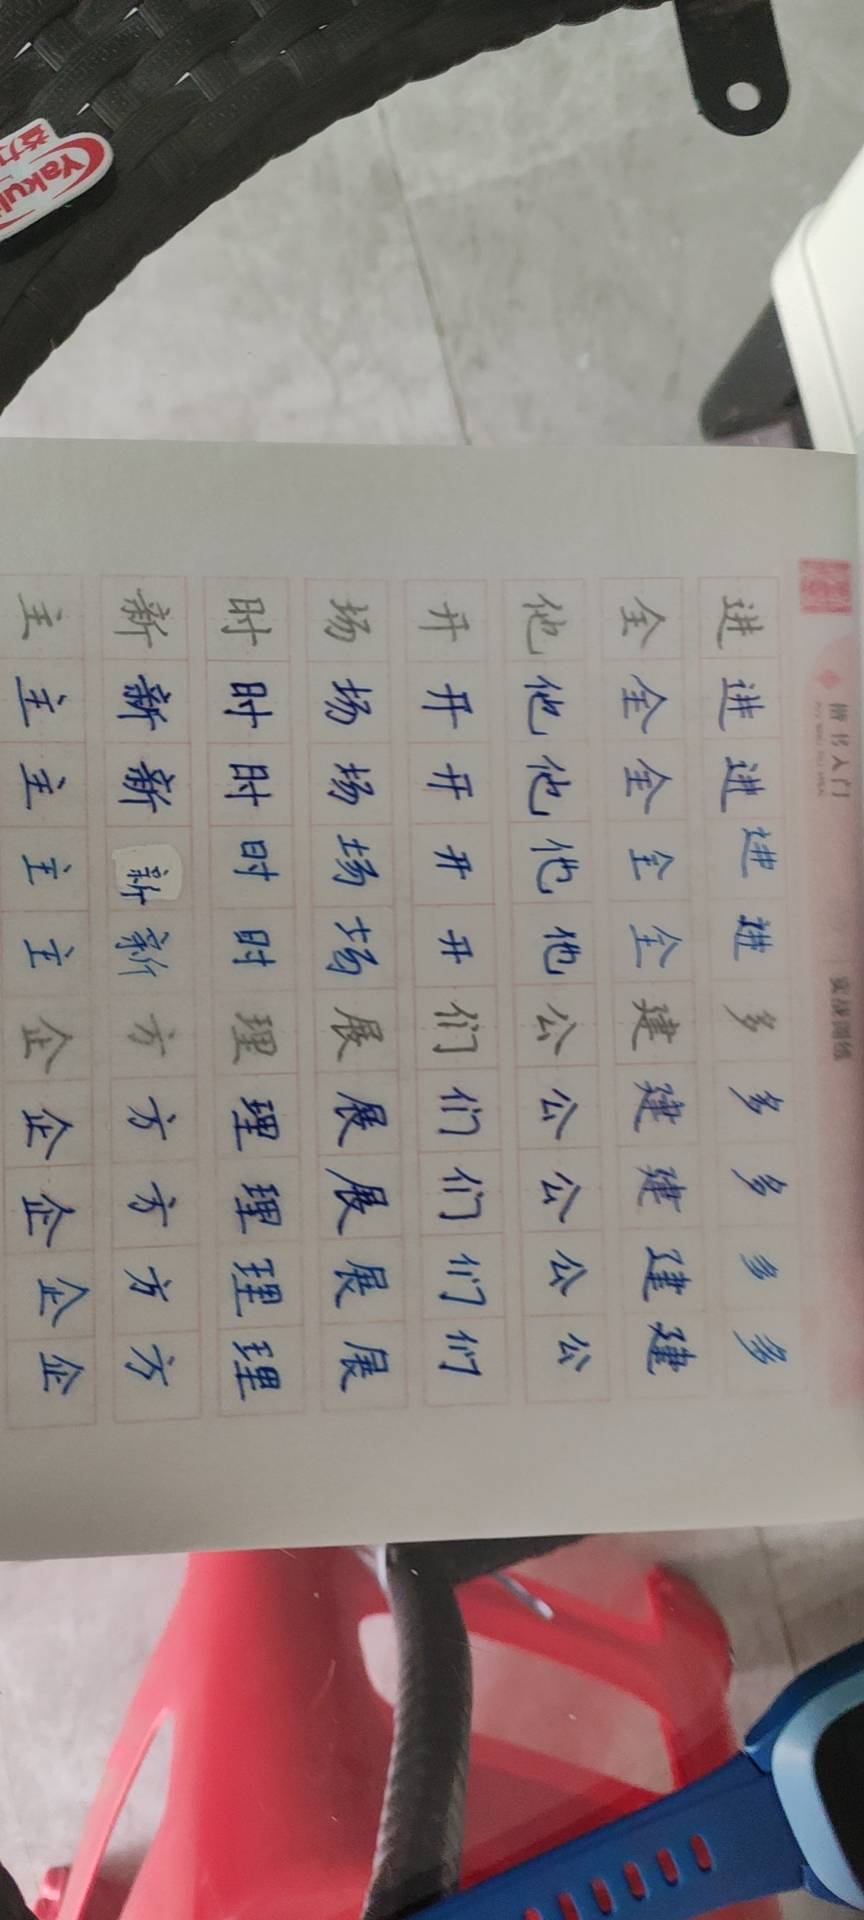 楷书入门
实战训练
进进进进进多多多多多
全全全全全建建建建建
他他他他他公公公公公
开开开开开们们们们们
场场场场场展展展展展
时时时时时理理理理理
新新新新新方方方方方
主主主主主企企企企企
益力
Yakul